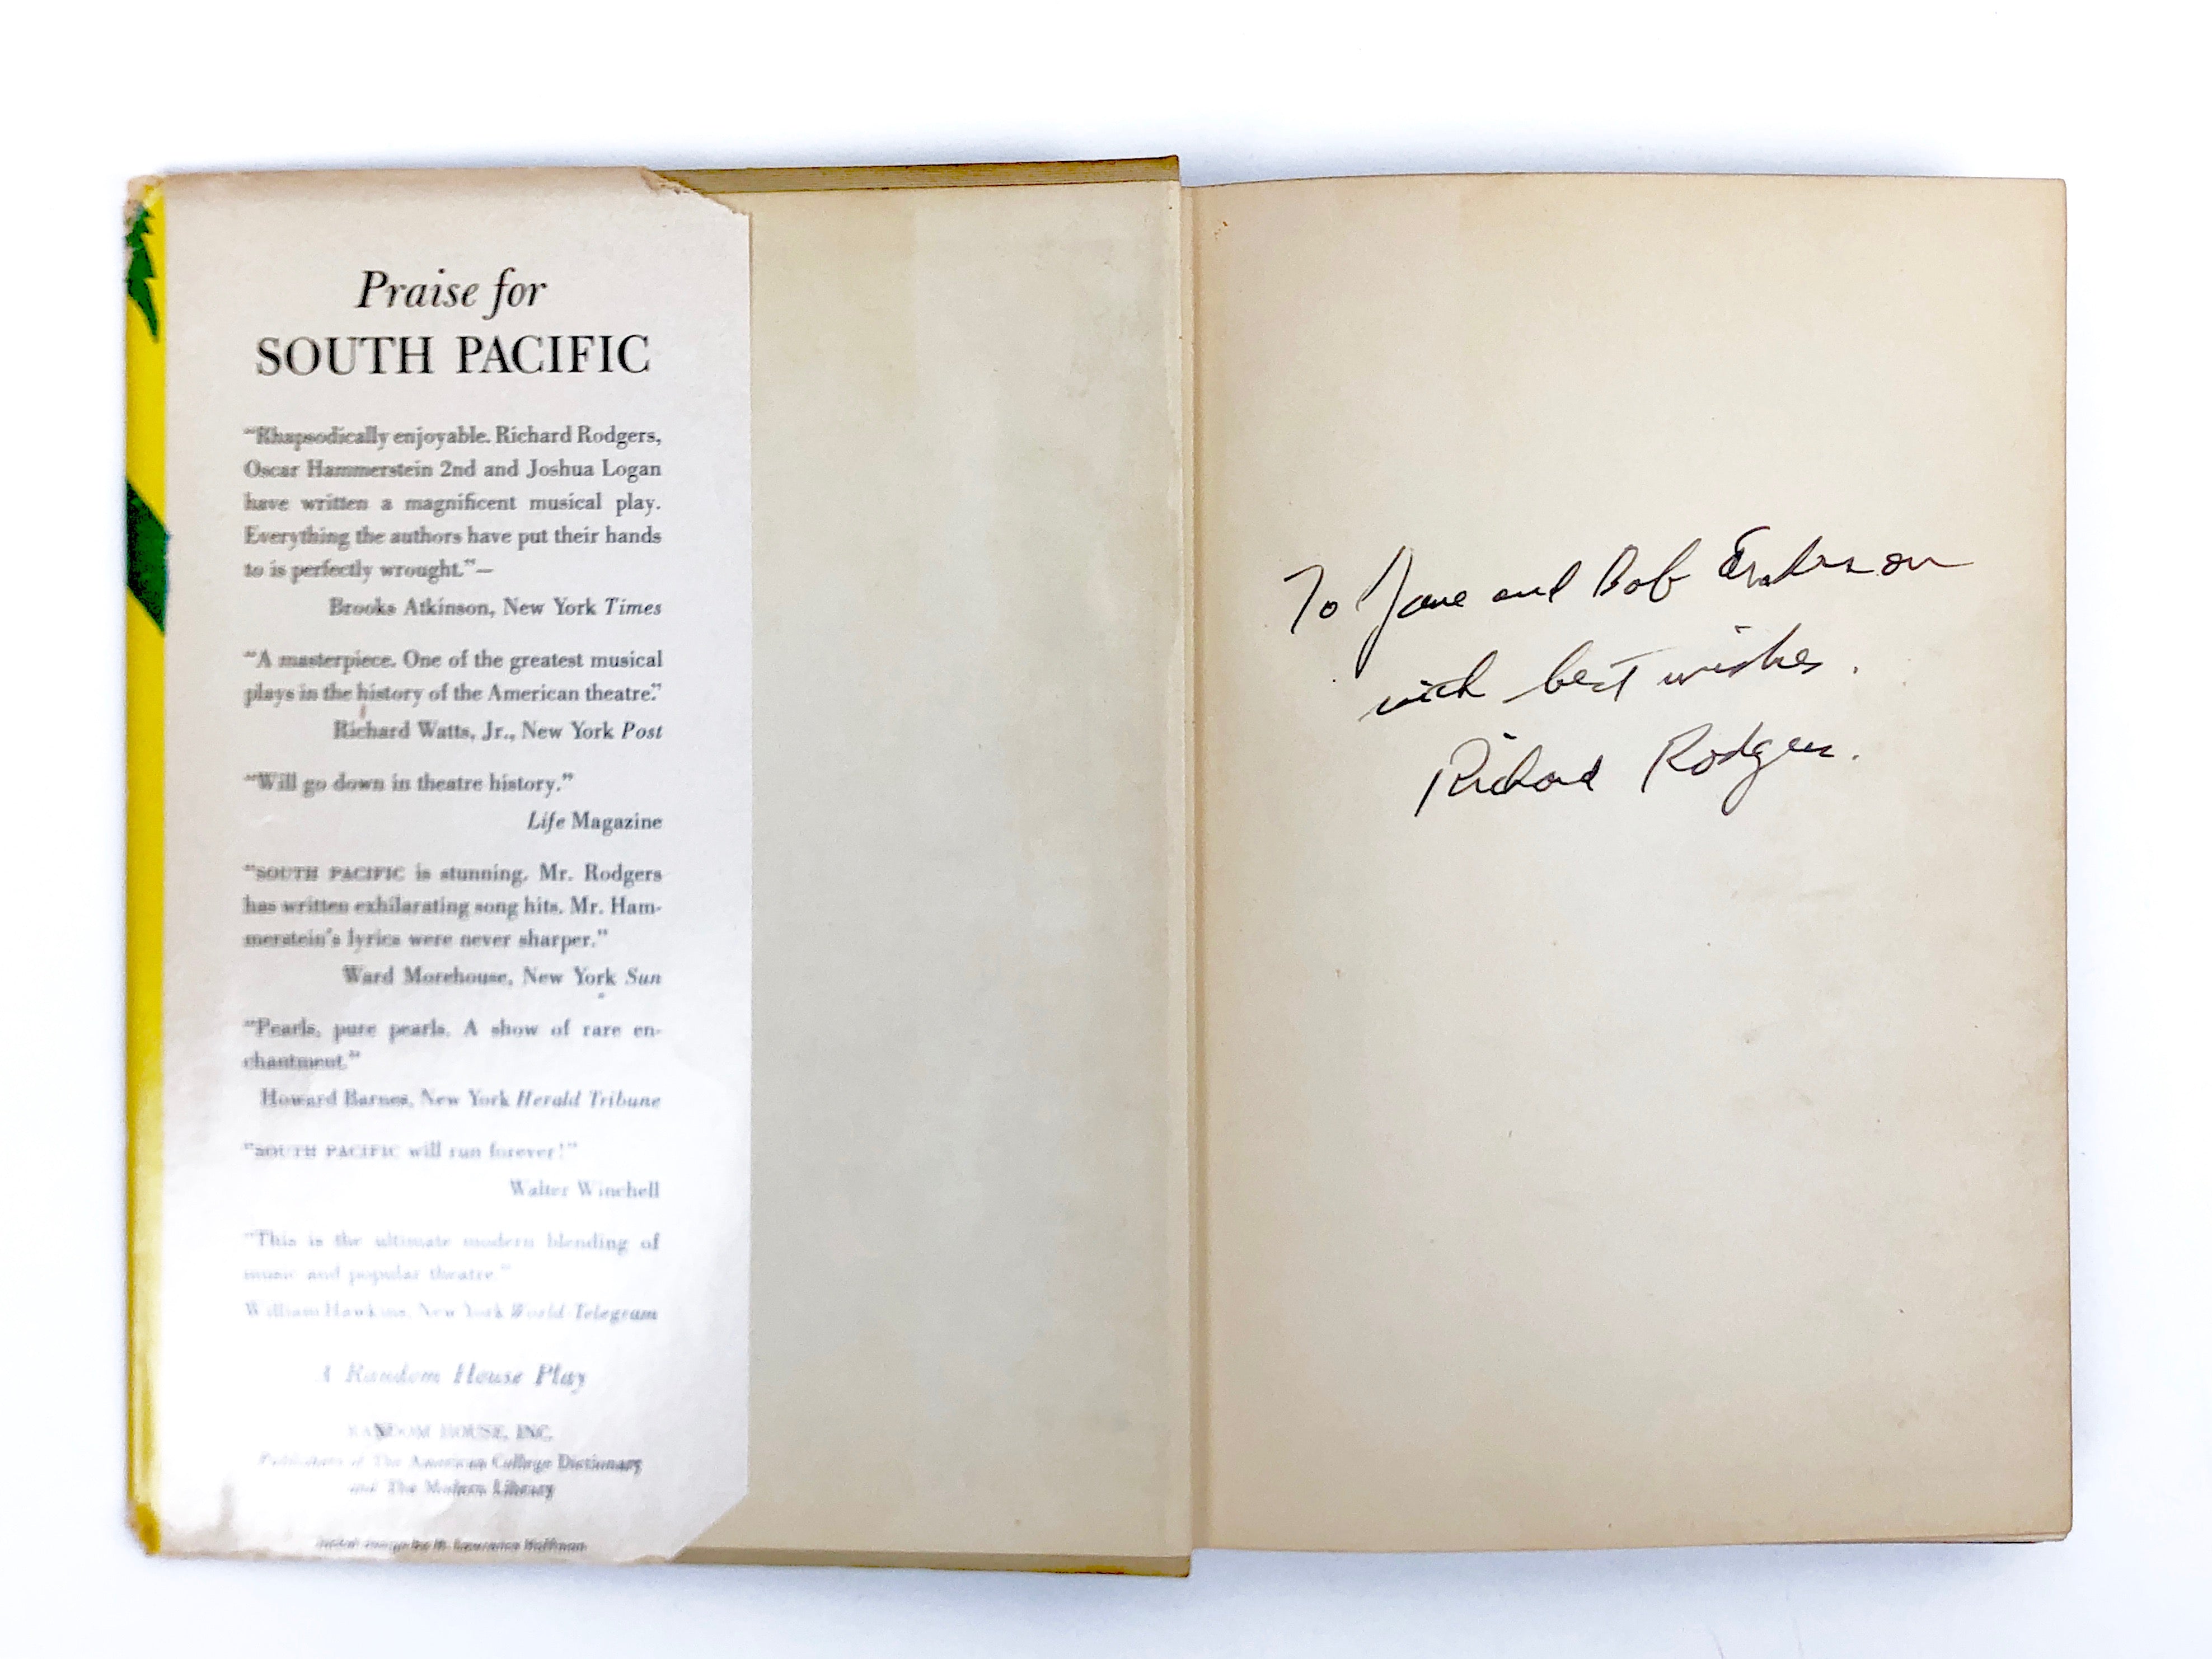 Praise for
SOUTH PACIFIC
"Rhapsodically enjoyable. Richard Rodgers,
Oscar Hammerstein 2nd and Joshua Logan
have written a magnificent musical play.
Everything the authors have put their hands
to is perfectly wrought."—
Brooks Atkinson, New York Times
"A masterpiece. One of the greatest musical
plays in the history of the American theatre."
Richard Watts, Jr., New York Post
"Will go down in theatre history."
Life Magazine
"SOUTH PACIFIC is stunning. Mr. Rodgers
has written exhilarating song hits. Mr. Ham-
merstein's lyrics were never sharper."
Ward Morehouse, New York Sun
"Pearls, pure pearls. A show of rare en-
chantment."
Howard Barnes, New York Herald Tribune
"SOUTH PACIFIC will run forever!"
Walter Winchell
"This is the ultimate modern blending of
music and popular theatre."
William Hawkins, New York World-Telegram
A Random House Play
RANDOM HOUSE, INC.
Publishers of The American College Dictionary
and The Modern Library
Jacket design by H. Lawrence Hoffman
To Jane and Bob
with best wishes.
Richard Rodgers.